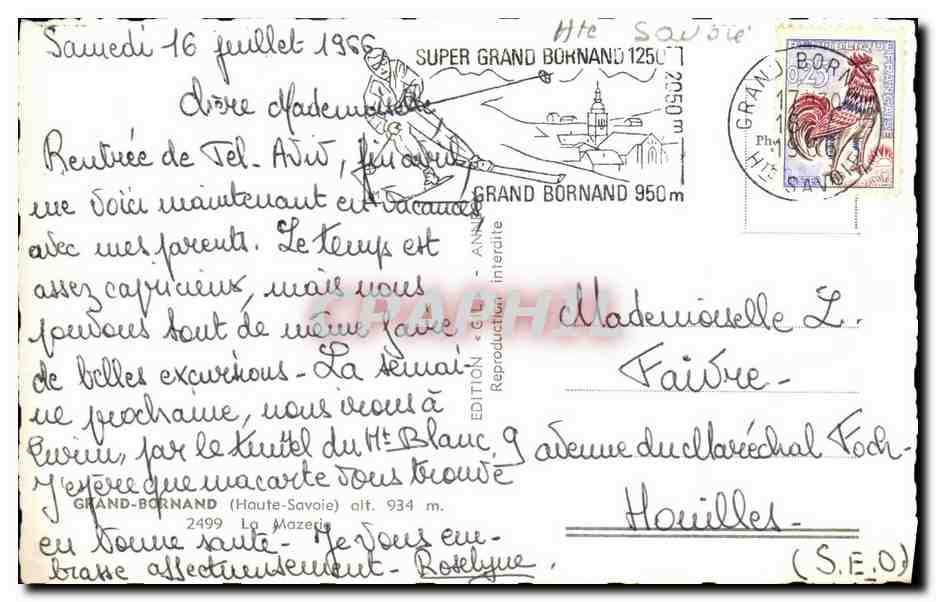 Samedi 16 juillet 1966
Chère Mademoiselle
Rentrée de Tel-Aviv, fin avril
me voici maintenant en vacances
avec mes parents. Le temps est
assez capricieux, mais nous
pouvons tout de même faire
de belles excursions - La semai-
ne prochaine, nous irons à
Turin, par le tunnel du Mt Blanc.
J'espère que ma carte vous trouve
GRAND-BORNAND (Haute-Savoie) alt. 934 m.
2499 La Mazerie
en bonne santé - Je vous em-
brasse affectueusement - Roselyne.
Hte SAVOIE
SUPER GRAND BORNAND 1250
2050 m
GRAND BORNAND 950 m
GRAND BORN
17
HTE SAVOIE
0,25
REPUBLIQUE FRANÇAISE
EDITION « GIL » - ANNE
Reproduction interdite
CPAPHIL
Mademoiselle L.
Faivre -
9 avenue du Maréchal Foch -
Houilles -
(S.E.O)